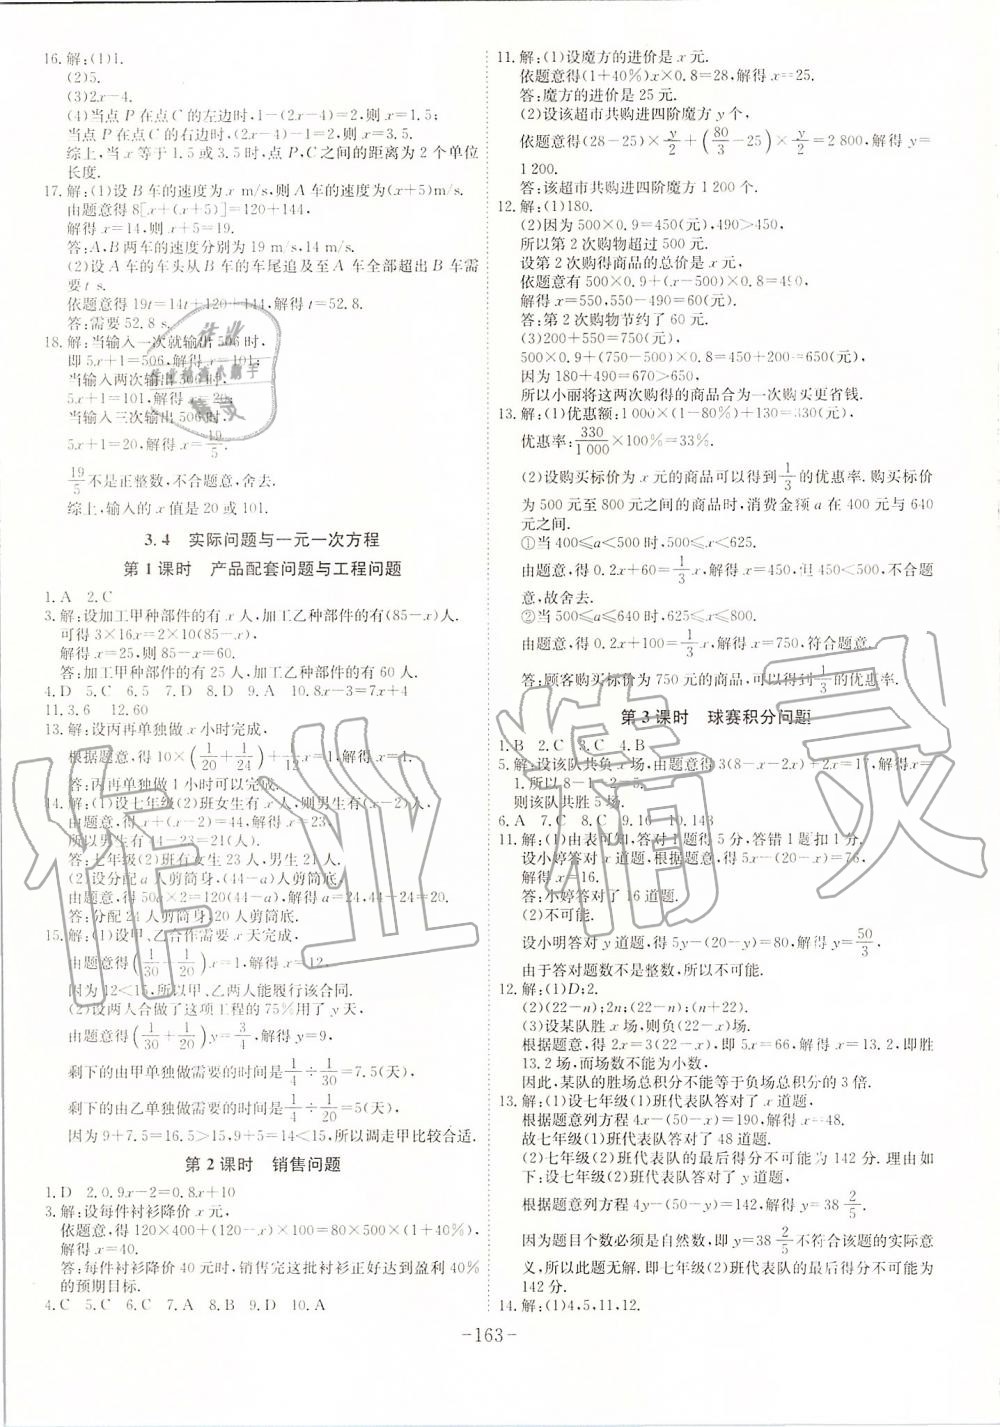 16.解:(1)1.
(2)5.
(3)2x-4.
(4)当点P在点C的左边时,1-(2x-4)=2,则x=1.5;
当点P在点C的右边时,(2x-4)-1=2,则x=3.5.
综上,当x等于1.5或3.5时,点P,C之间的距离为2个单位
长度.
17.解:(1)设B车的速度为x m/s,则A车的速度为(x+5)m/s.
由题意得8[x+(x+5)]=120+144,
解得x=14,则x+5=19.
答:A,B两车的速度分别为19 m/s,14 m/s.
(2)设A车的车头从B车的车尾追及至A车全部超出B车需
要t s.
依题意得19t=14t+120+144,解得t=52.8.
答:需要52.8 s.
18.解:当输入一次就输出506时,
即5x+1=506,解得x=101;
当输入两次输出506时,
5x+1=101,解得x=20;
当输入三次输出506时,
5x+1=20,解得x=19/5.
19/5不是正整数,不合题意,舍去.
综上,输入的x值是20或101.
3.4 实际问题与一元一次方程
第1课时 产品配套问题与工程问题
1.A 2.C
3.解:设加工甲种部件的有x人,加工乙种部件的有(85-x)人.
可得3×16x=2×10(85-x).
解得x=25,则85-x=60.
答:加工甲种部件的有25人,加工乙种部件的有60人.
4.D 5.C 6.5 7.D 8.D 9.C 10.8x-3=7x+4
11.3,6 12.60
13.解:设丙再单独做x小时完成,
根据题意,得10×(1/20+1/24)+1/12x=1,解得x=1.
答:丙再单独做1小时可以完成.
14.解:(1)设七年级(2)班女生有x人,则男生有(x-2)人.
由题意,得x+(x-2)=44,解得x=23,
所以男生有44-23=21(人).
答:七年级(2)班有女生23人,男生21人.
(2)设分配a人剪筒身,(44-a)人剪筒底.
由题意,得50a×2=120(44-a),解得a=24,44-24=20.
答:分配24人剪筒身,20人剪筒底.
15.解:(1)设甲、乙合作需要x天完成,
由题意得(1/30+1/20)x=1,解得x=12,
因为12<15,所以甲、乙两人能履行该合同.
(2)设两人合做了这项工程的75%用了y天,
由题意得(1/30+1/20)y=3/4,解得y=9,
剩下的由甲单独做需要的时间是1/4÷1/30=7.5(天),
剩下的由乙单独做需要的时间是1/4÷1/20=5(天),
因为9+7.5=16.5>15,9+5=14<15,所以调走甲比较合适.
第2课时 销售问题
1.D 2.0.9x-2=0.8x+10
3.解:设每件衬衫降价x元,
依题意,得120×400+(120-x)×100=80×500×(1+40%),
解得x=40.
答:每件衬衫降价40元时,销售完这批衬衫正好达到盈利40%
的预期目标.
4.C 5.C 6.C 7.A 8.B 9.D 10.A
11.解:(1)设魔方的进价是x元.
依题意得(1+40%)x×0.8=28,解得x=25.
答:魔方的进价是25元.
(2)设该超市共购进四阶魔方y个,
依题意得(28-25)×y/2+(80/3-25)×y/2=2 800,解得y=
1 200.
答:该超市共购进四阶魔方1 200个.
12.解:(1)180.
(2)因为500×0.9=450(元),490>450,
所以第2次购物超过500元.
设第2次购得商品的总价是x元,
依题意有500×0.9+(x-500)×0.8=490,
解得x=550,550-490=60(元).
答:第2次购物节约了60元.
(3)200+550=750(元),
500×0.9+(750-500)×0.8=450+200=650(元),
因为180+490=670>650,
所以小丽将这两次购得的商品合为一次购买更省钱.
13.解:(1)优惠额:1 000×(1-80%)+130=330(元),
优惠率:330/1 000×100%=33%.
(2)设购买标价为x元的商品可以得到1/3的优惠率.购买标价
为500元至800元之间的商品时,消费金额a在400元与640
元之间.
①当400≤a<500时,500≤x<625.
由题意,得0.2x+60=1/3x,解得x=450,但450<500,不合题
意,故舍去.
②当500≤a≤640时,625≤x≤800.
由题意,得0.2x+100=1/3x,解得x=750,符合题意.
答:顾客购买标价为750元的商品,可以得到1/3的优惠率.
第3课时 球赛积分问题
1.B 2.C 3.C 4.B
5.解:设该队共负x场,由题意得3(8-x-2x)+2x=17,解得x=
1.所以8-1-2=5,
则该队共胜5场.
6.A 7.C 8.C 9.16 10.143
11.解:(1)由表可知,答对1题得5分,答错1题扣1分.
设小婷答对x道题,根据题意,得5x-(20-x)=76,
解得x=16.
答:小婷答对了16道题.
(2)不可能.
设小明答对y道题,得5y-(20-y)=80,解得y=50/3.
由于答对题数不是整数,所以不可能.
12.解:(1)D;2.
(2)(22-n);2n;(22-n);(22+n)
(3)设某队胜x场,则负(22-x)场.
根据题意,得2x=3(22-x),即5x=66,解得x=13.2,即胜
13.2场,而场数不能为小数,
因此,某队的胜场总积分不能等于负场总积分的3倍.
13.解:(1)设七年级(1)班代表队答对了x道题,
根据题意列方程4x-(50-x)=190,解得x=48.
故七年级(1)班代表队答对了48道题.
(2)七年级(2)班代表队的最后得分不可能为142分.理由如
下:设七年级(2)班代表队答对了y道题,
根据题意列方程4y-(50-y)=142,解得y=38 2/5.
因为题目个数必须是自然数,即y=38 2/5不符合该题的实际意
义,所以此题无解.即七年级(2)班代表队的最后得分不可能为
142分.
14.解:(1)4,5,11,12.
-163-
作业精灵